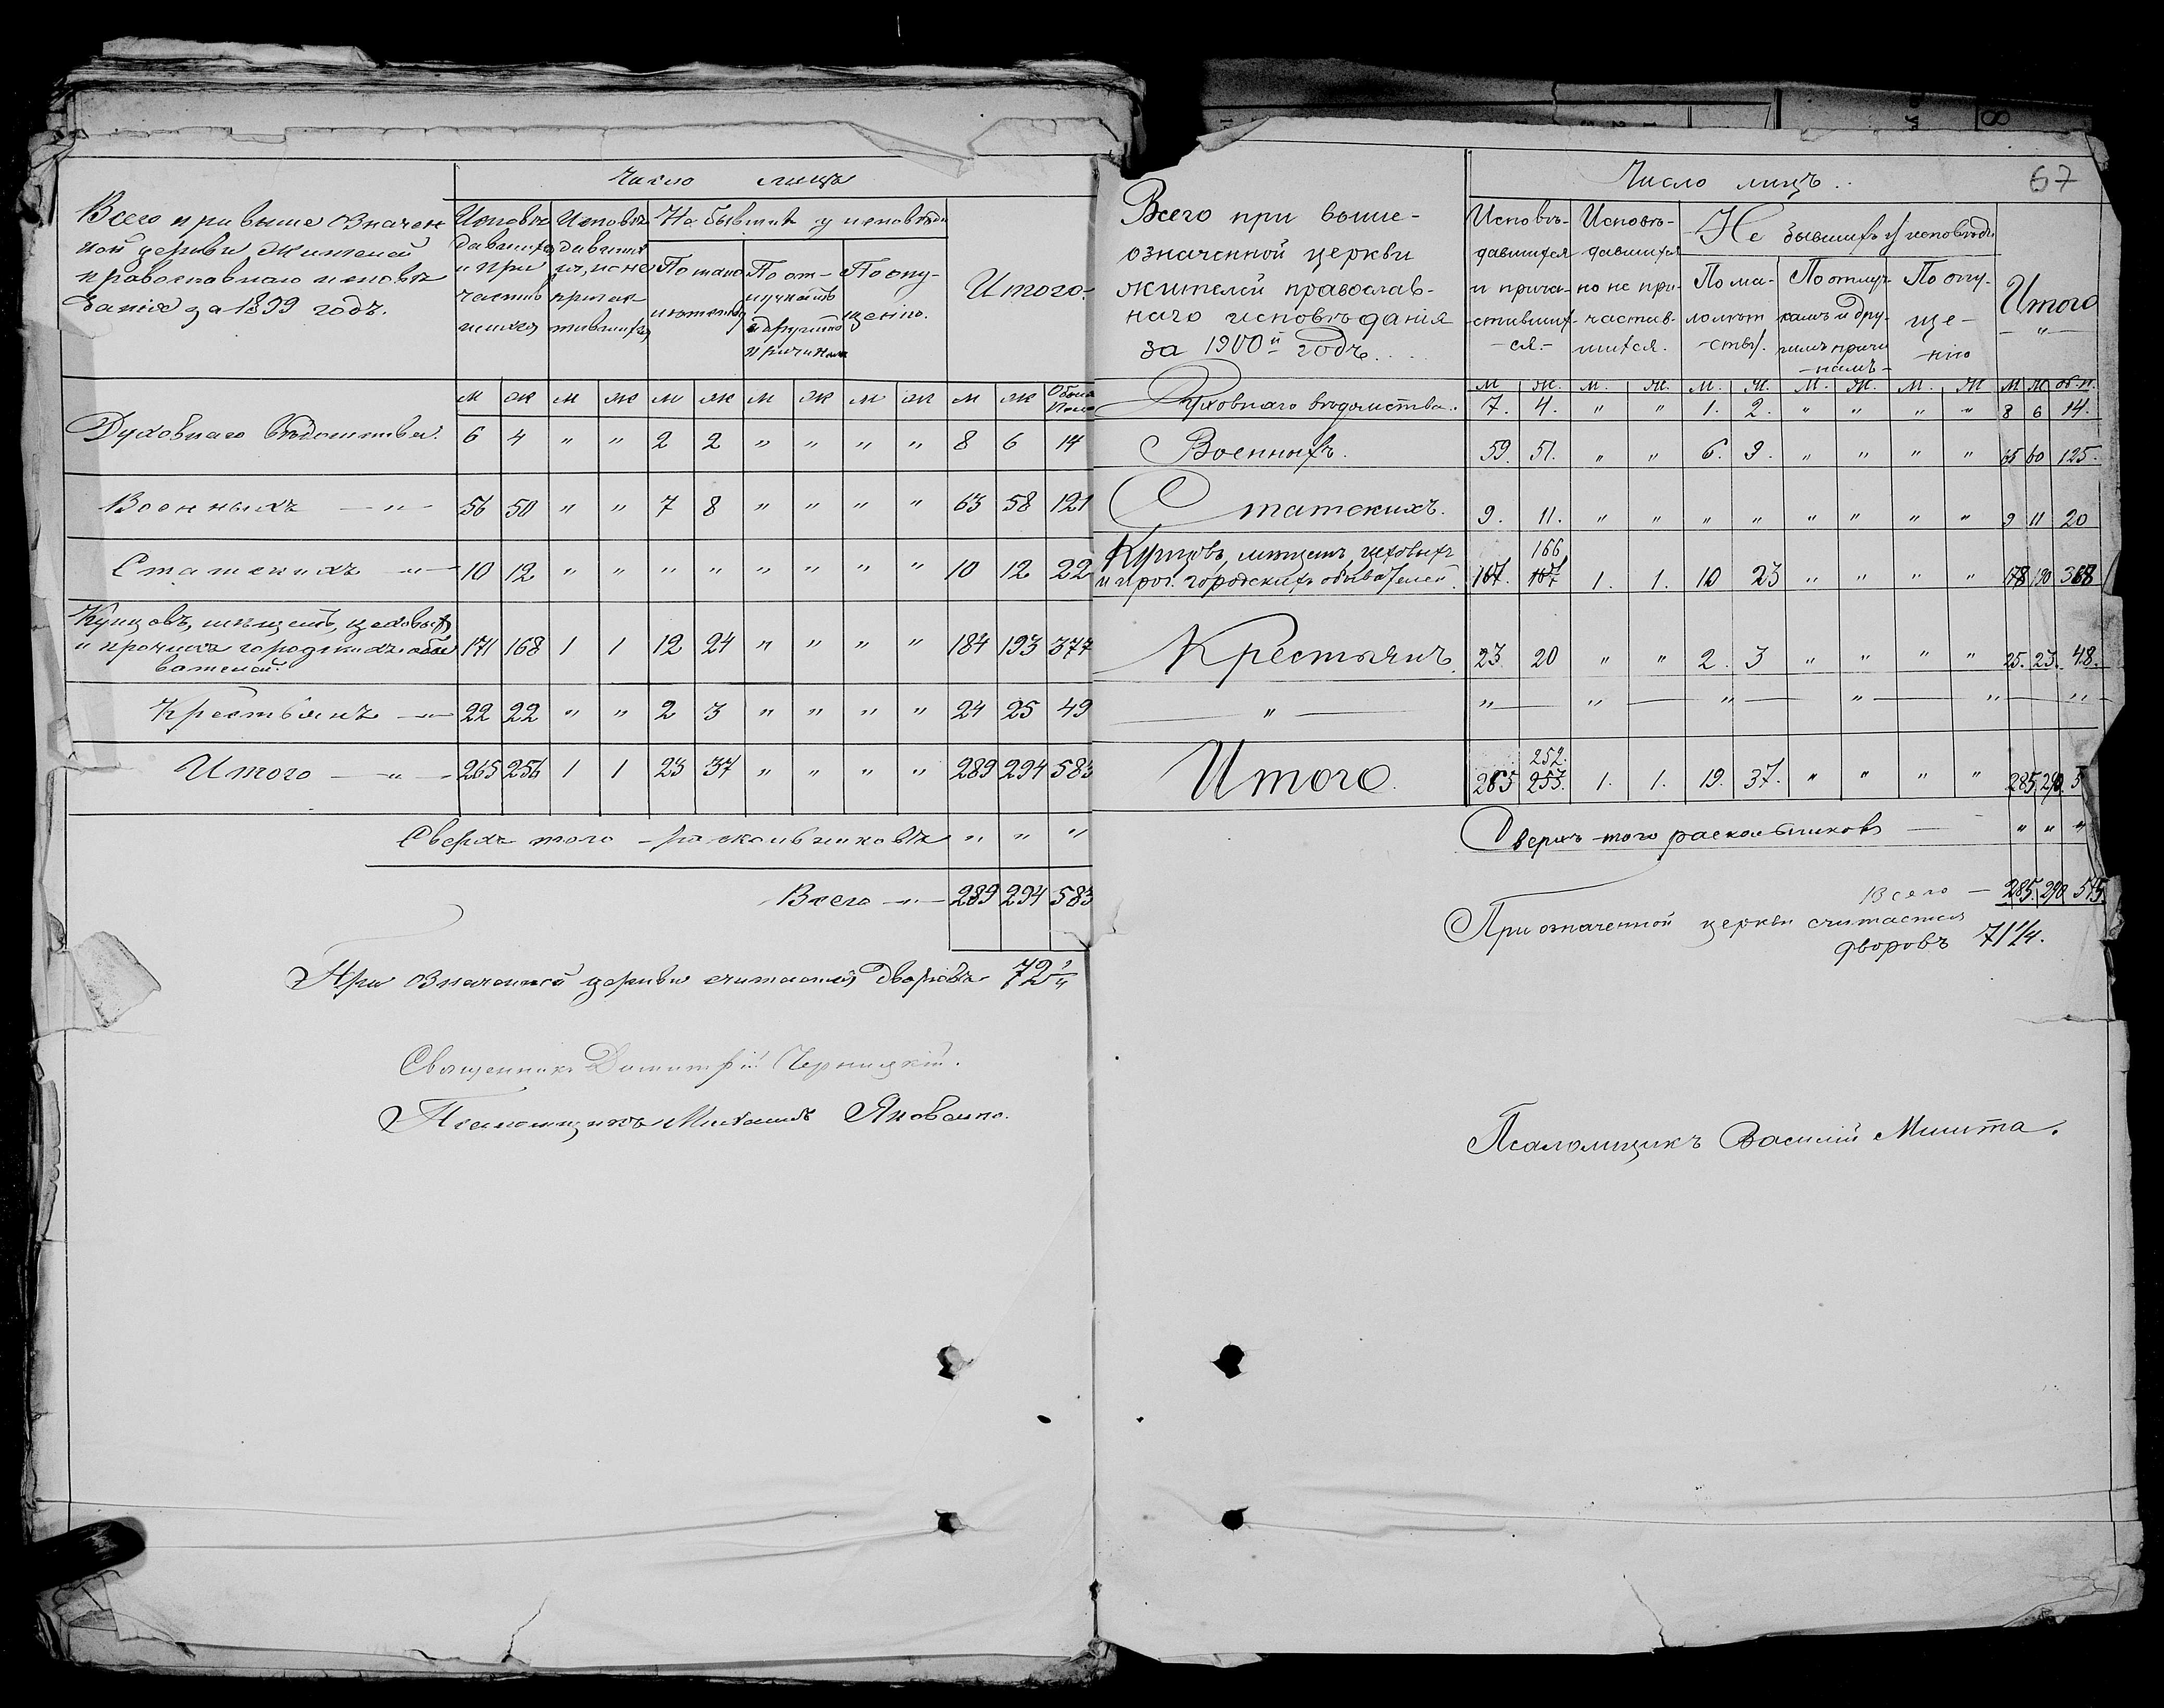 Число лицъ
Всего при выше означен
ной церкви жителей
православнаго исповѣ
данія за 1899 годъ.
Исповѣ
давшихся
и при
частив
шихся
Исповѣ
давших
ся, но не
причас
тившихся
Не бывшихъ у исповѣди
По мало
лѣтству
По от-
лучкамъ
и другимъ
причинамъ
По опу-
щенію.
Итого.
м ж м ж м ж м ж м ж м ж Обоего Пола
Духовнаго вѣдомства. 6 4 " " 2 2 " " " " 8 6 14
Военныхъ — " — 56 50 " " 7 8 " " " " 63 58 121
Статскихъ — " — 10 12 " " " " " " " " 10 12 22
Купцовъ, мѣщанъ, цеховыхъ
и прочихъ городскихъ обы
вателей. 171 168 1 1 12 24 " " " " 184 193 377
Крестьянъ — " — 22 22 " " 2 3 " " " " 24 25 49
Итого — " — 265 256 1 1 23 37 " " " " 289 294 583
Сверхъ того — раскольниковъ " " "
Всего — " — 289 294 583
При означенной церкви считается дворовъ 72 1/4
Священникъ Димитрій Черницкій.
Псаломщикъ Михаилъ Яковенко.
67
Число лицъ..
Всего при выше-
означенной церкви
жителей православ-
наго исповѣданія
за 1900й годъ....
Исповѣ-
давшихся
и прича-
стивших-
-ся.-
Исповѣ-
давшихся
но не при-
частив-
шихся.
Не бывшихъ у исповѣди
По ма-
лолѣт
-ству.
По отлуч-
камъ и дру-
гимъ причи
-намъ-
По опу-
ще-
-нію
Итого
— " —
М Ж. М. Ж. М. Ж. М. Ж. М. Ж М Ж об.п.
Духовнаго вѣдомства. 7. 4. " " 1. 2. " " " " 8 6 14.
Военныхъ. 59. 51. " " 6. 9. " " " " 65 60 125.
Статскихъ. 9. 11. " " " " " " " " 9 11 20
Купцовъ, мѣщанъ, цеховыхъ 166
и проч. городскихъ обывателей. 167. 167 1. 1. 10 23 " " " " 178 190 368
Крестьянъ. 23 20 " " 2. 3 " " " " 25. 23. 48.
— " — " — " — " — " — " — "
252.
Итого. 265 253. 1. 1. 19. 37. " " " " 285. 290. 5
Сверхъ того раскольниковъ — " " "
Всего — 285. 290 575.
При означенной церкви считается
дворовъ 71 1/4.
Псаломщикъ Василій Мишта.